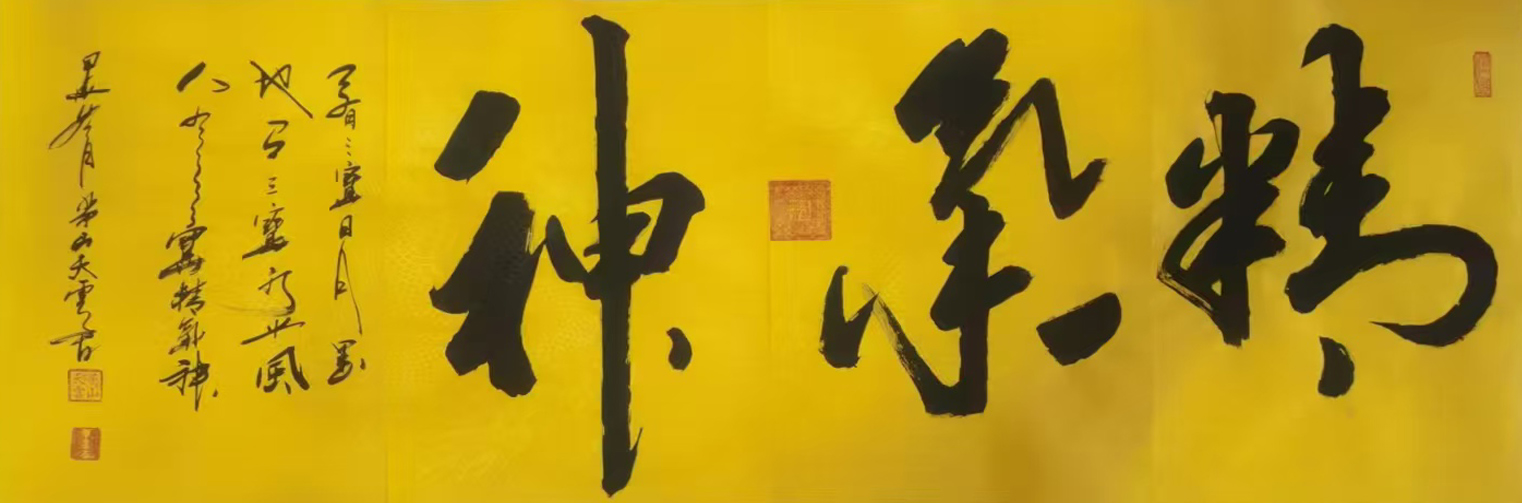 精氣神
天有三寶日月星
地有三寶水火風
人有三寶精氣神
月 山天雲書